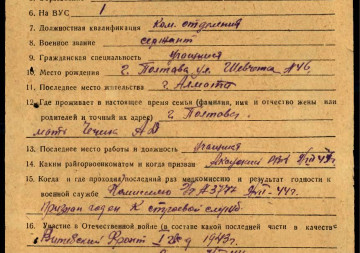 6. На ВУС 1
7. Должностная квалификация Ком. отделения
8. Военное звание сержант
9. Гражданская специальность учащийся
10. Место рождения г. Полтава ул. Шевченка №46.
11. Последнее место жительства г. Алмаата
12. Где проживает в настоящее время семья (фамилия, имя и отчество жены или
родителей и точный их адрес) г. Полтава.
мать
13. Последнее место работы и должность учащийся
14. Каким райгорвоенкоматом и когда призван РВК
15. Когда и где проходил последний раз медкомиссию и результат годности к
военной службе Комиссию 44г.
Признан годен к строевой службе.
16. Участие в Отечественной войне (в составе какой последней части в качестве
Витебский фронт 1943г.